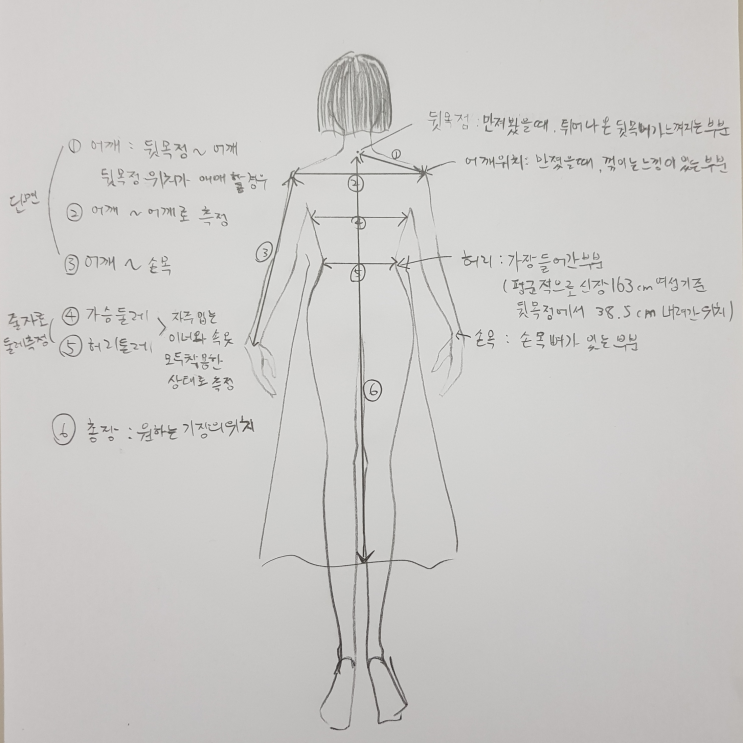 ① 어깨 : 뒷목점 ~ 어깨
뒷목점 위치가 애매할 경우
② 어깨 ~ 어깨로 측정
단면
③ 어깨 ~ 손목
줄자로
둘레측정
④ 가슴둘레
⑤ 허리둘레
자주 입는
이너와 속옷
모두 착용한
상태로 측정
⑥ 총장 : 원하는 기장의 위치
뒷목점 : 만져봤을때, 튀어나온 뒷목뼈가 느껴지는 부분
어깨위치 : 만졌을때, 꺾이는 느낌이 있는 부분
허리 : 가장 들어간 부분
(평균적으로 신장 163cm 여성기준
뒷목점에서 38.5cm 내려간 위치)
손목 : 손목뼈가 있는 부분
①
②
③
④
⑤
⑥